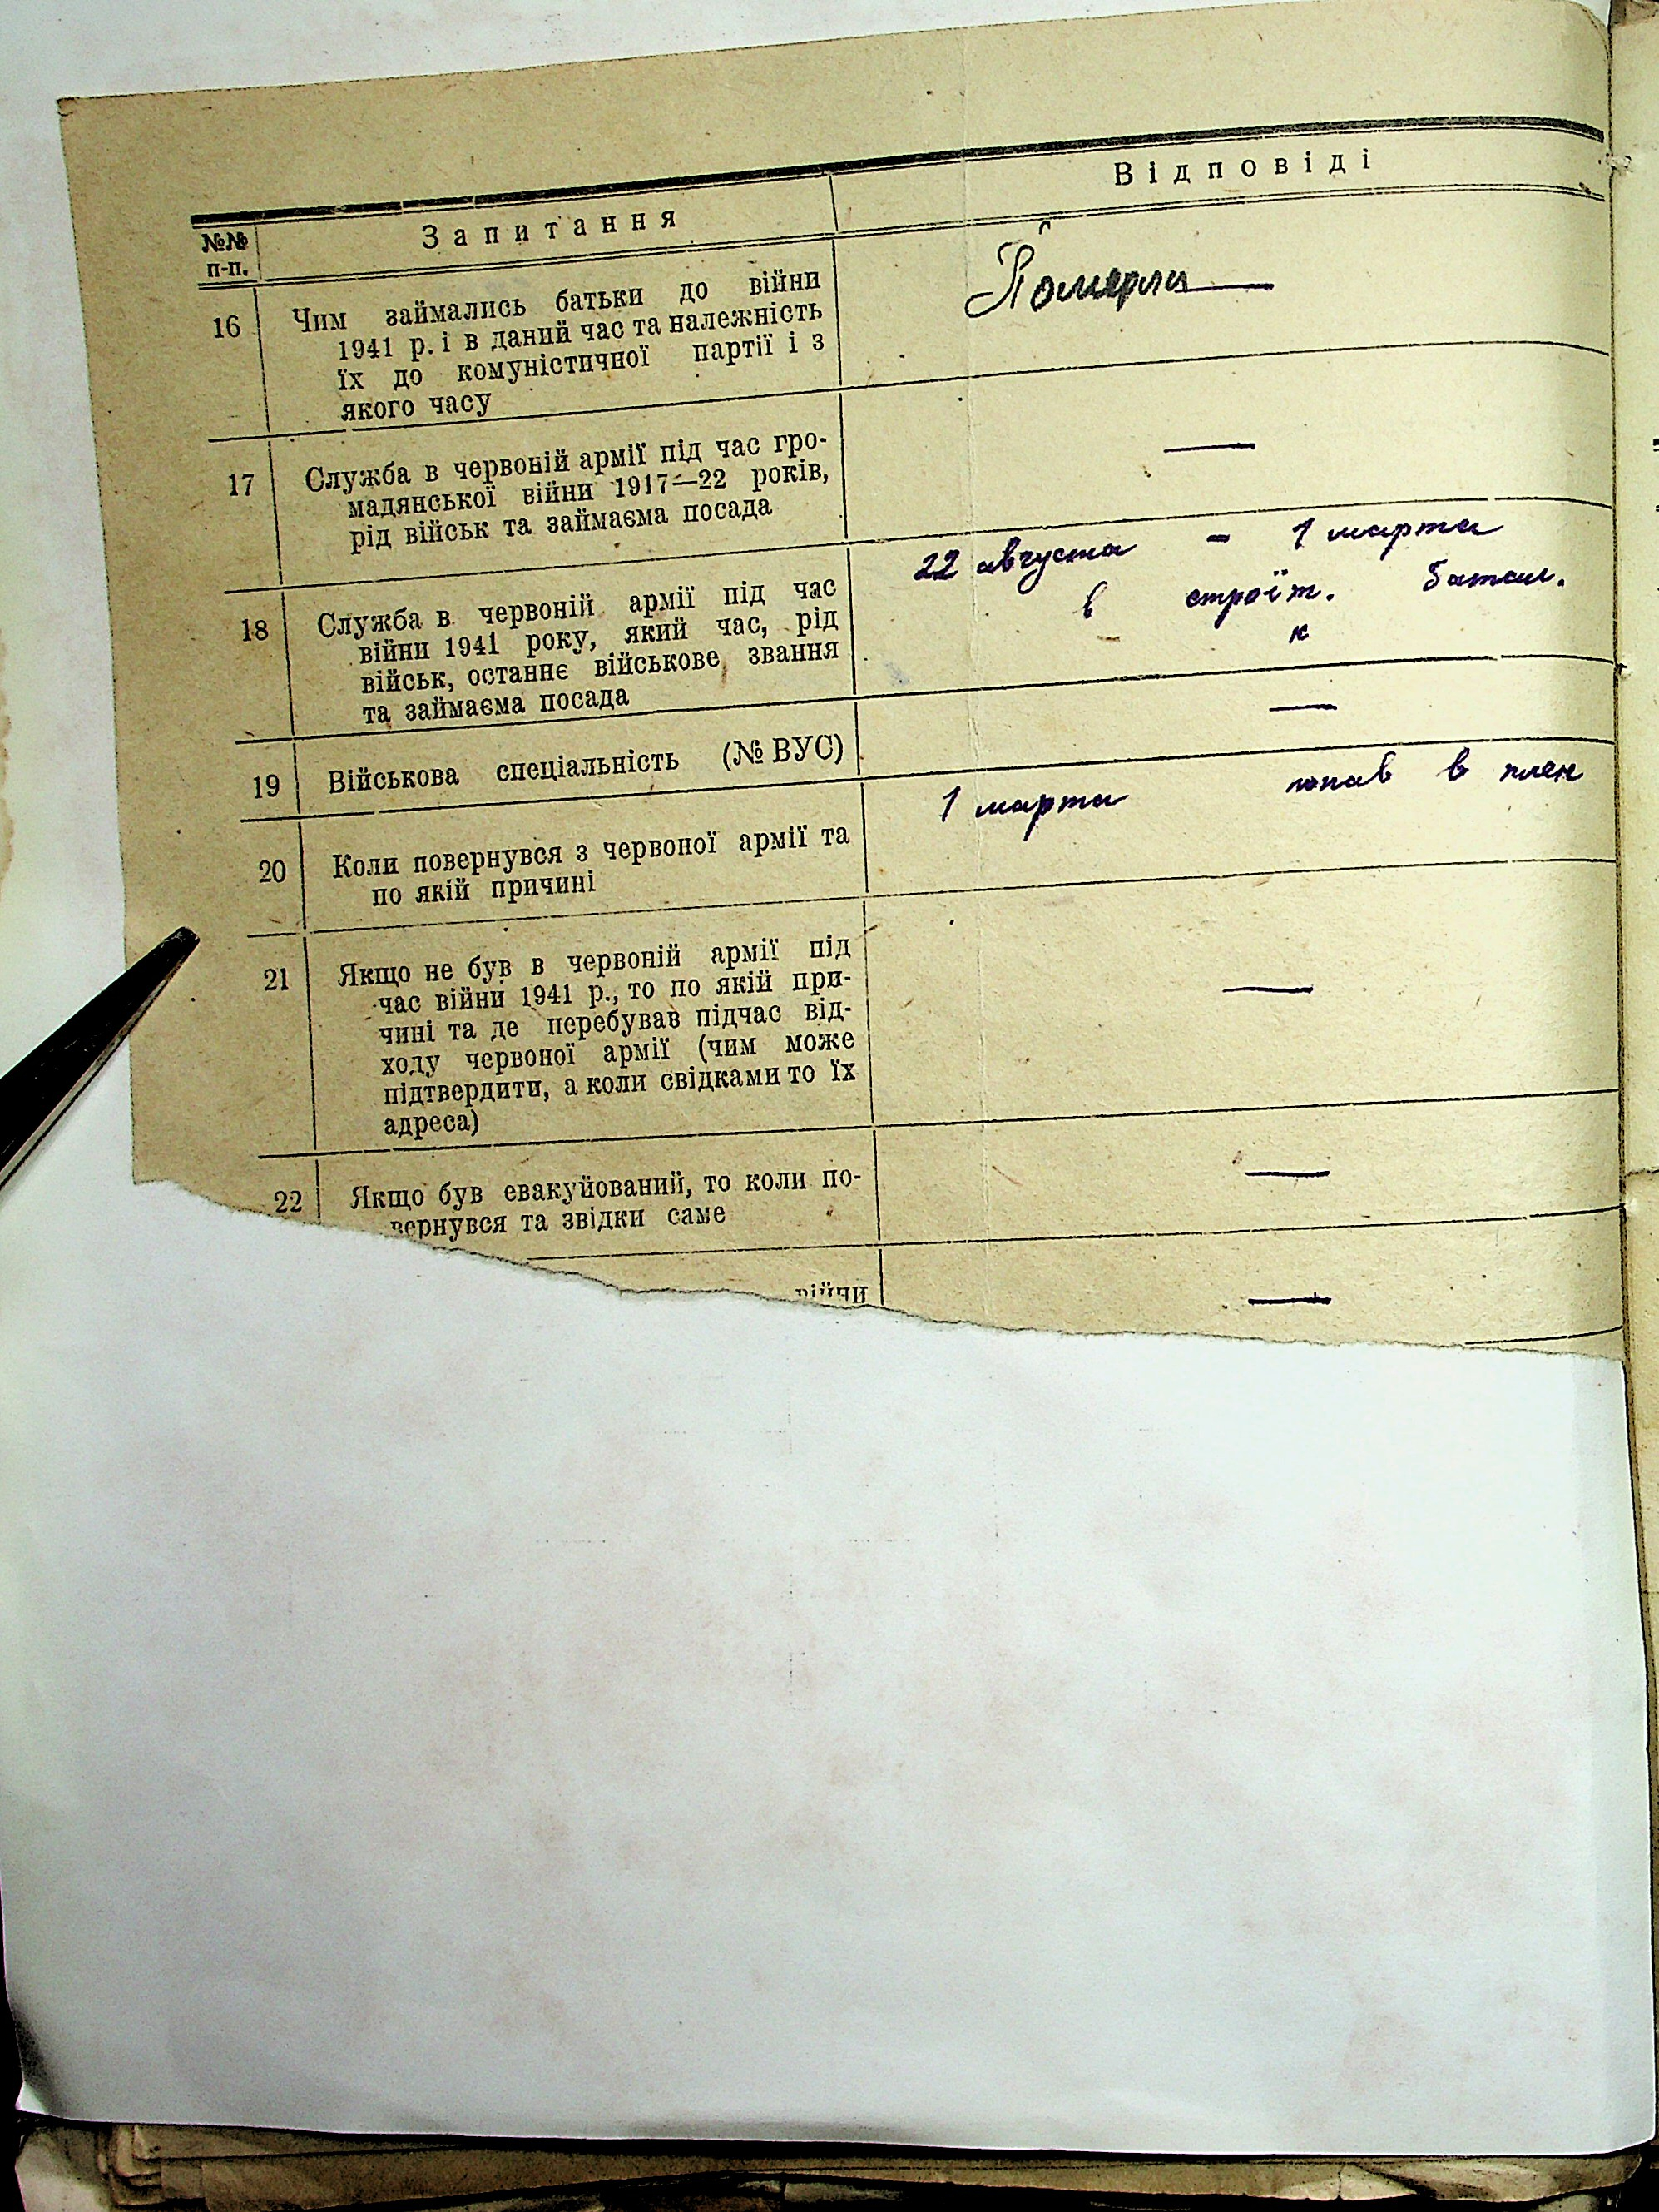 №№ п-п. Запитання Відповіді
16 Чим займались батьки до війни
1941 р. і в даний час та належність
їх до комуністичної партії і з
якого часу
Померли —
17 Служба в червоній армії під час гро-
мадянської війни 1917—22 років,
рід військ та займаєма посада
—
18 Служба в червоній армії під час
війни 1941 року, який час, рід
військ, останнє військове звання
та займаєма посада
22 августа - 1 марта
в строїт. батал.
к
19 Військова спеціальність (№ ВУС)
—
20 Коли повернувся з червоної армії та
по якій причині
1 марта попав в плен
21 Якщо не був в червоній армії під
час війни 1941 р., то по якій при-
чині та де перебував підчас від-
ходу червоної армії (чим може
підтвердити, а коли свідками то їх
адреса)
—
22 Якщо був евакуйований, то коли по-
вернувся та звідки саме
—
війни
—